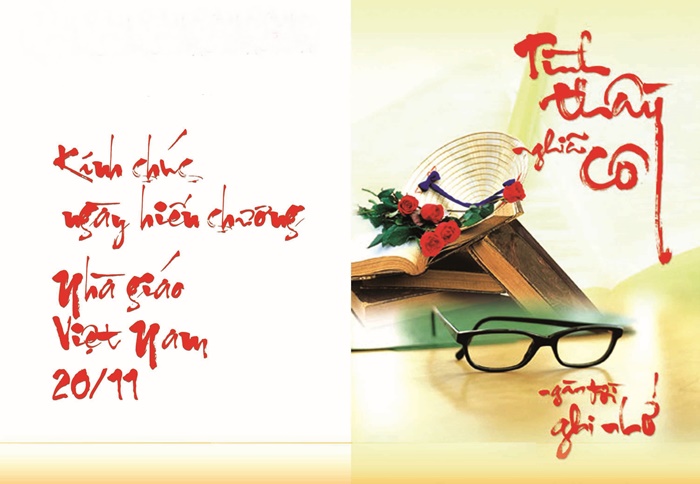 Kính chúc
ngày hiến chương
Nhà giáo
Việt Nam
20/11
Tình
thầy
nghĩa cô
ngàn đời
ghi nhớ